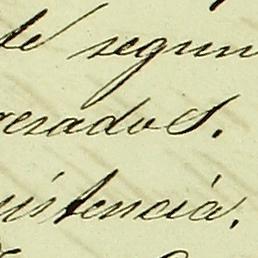 té segun
gerados.
istencia.